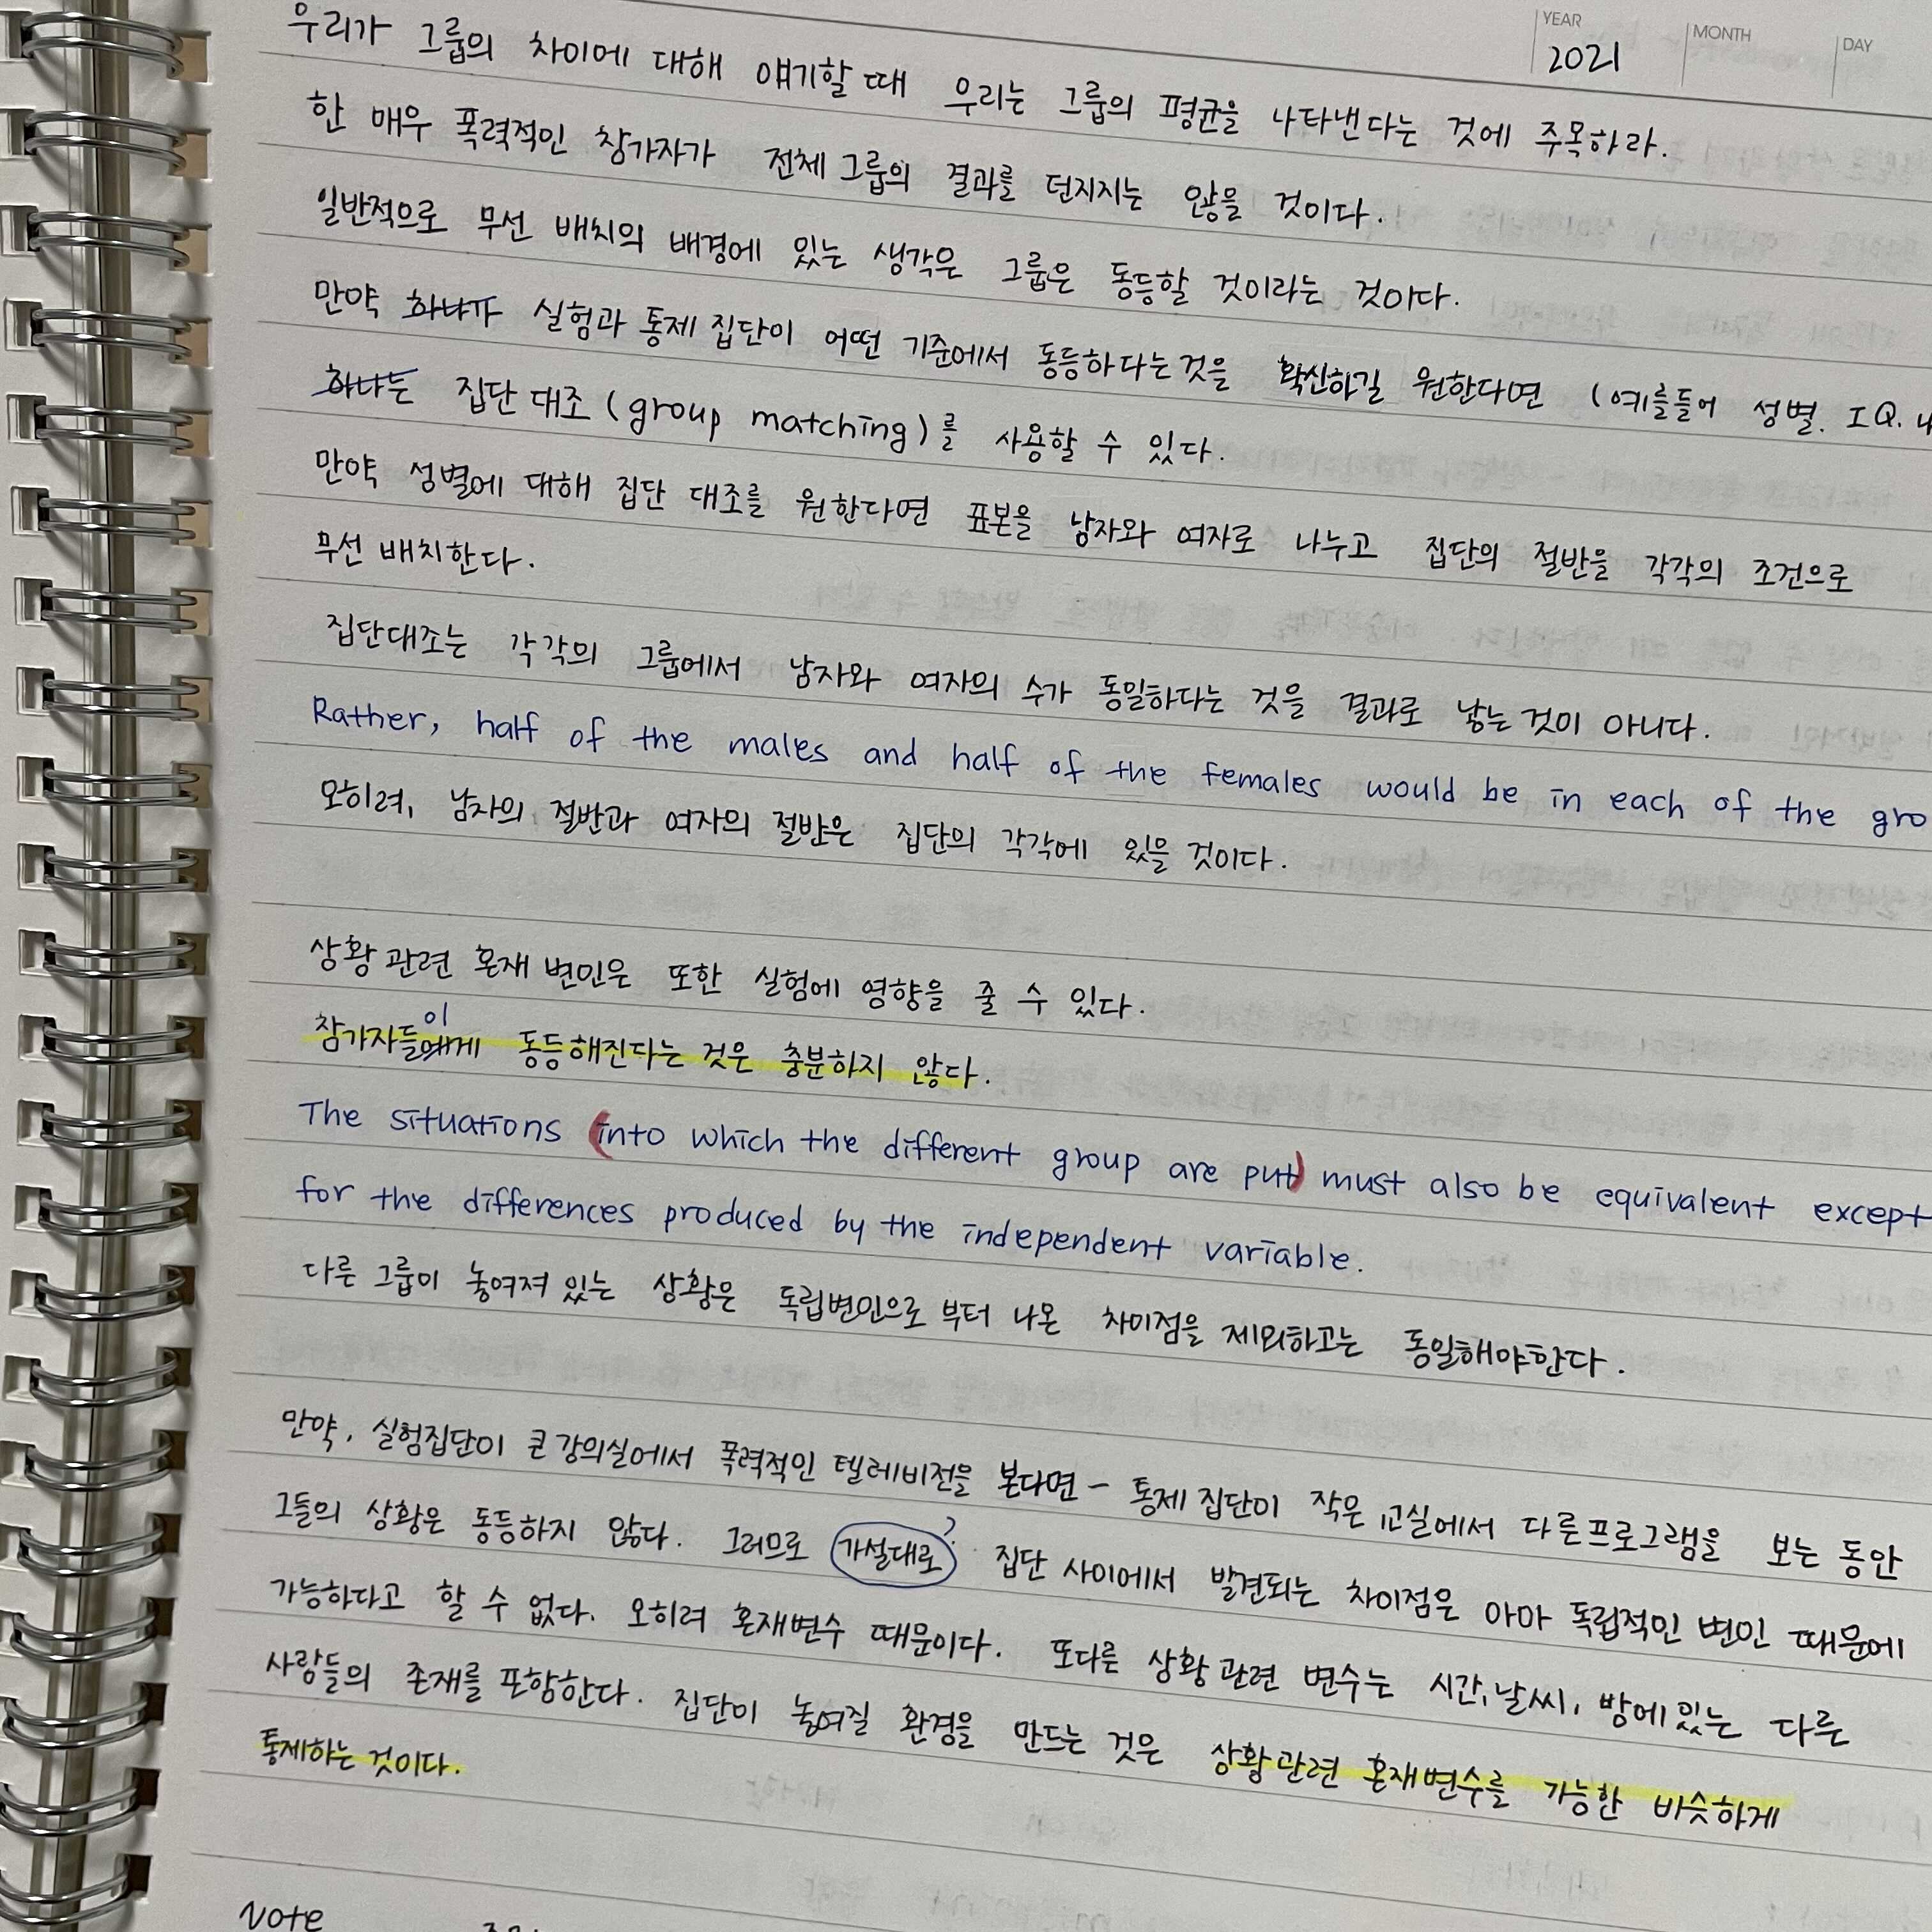 YEAR MONTH DAY
2021
우리가 그룹의 차이에 대해 얘기할 때 우리는 그룹의 평균을 나타낸다는 것에 주목하라.
한 매우 폭력적인 참가자가 전체 그룹의 결과를 던지지는 않을 것이다.
일반적으로 무선 배치의 배경에 있는 생각은 그룹은 동등할 것이라는 것이다.
만약 하나가 실험과 통제 집단이 어떤 기준에서 동등하다는 것을 확신하길 원한다면 (예를들어 성별. IQ. 
하나는 집단 대조 (group matching)를 사용할 수 있다.
만약 성별에 대해 집단 대조를 원한다면 표본을 남자와 여자로 나누고 집단의 절반을 각각의 조건으로
무선 배치한다.
집단대조는 각각의 그룹에서 남자와 여자의 수가 동일하다는 것을 결과로 낳는 것이 아니다.
Rather, half of the males and half of the females would be in each of the gro
오히려, 남자의 절반과 여자의 절반은 집단의 각각에 있을 것이다.
상황 관련 혼재 변인은 또한 실험에 영향을 줄 수 있다.
참가자들이 동등해진다는 것은 충분하지 않다.
The situations (into which the different group are put) must also be equivalent except
for the differences produced by the independent variable.
다른 그룹이 놓여져 있는 상황은 독립변인으로 부터 나온 차이점을 제외하고는 동일해야한다.
만약, 실험집단이 큰 강의실에서 폭력적인 텔레비전을 본다면 - 통제 집단이 작은 교실에서 다른프로그램을 보는 동안
그들의 상황은 동등하지 않다. 그러므로 가설대로? 집단 사이에서 발견되는 차이점은 아마 독립적인 변인 때문에
가능하다고 할 수 없다. 오히려 혼재변수 때문이다. 또다른 상황 관련 변수는 시간, 날씨, 방에 있는 다른
사람들의 존재를 포함한다. 집단이 놓여질 환경을 만드는 것은 상황관련 혼재변수를 가능한 비슷하게
통제하는 것이다.
Note